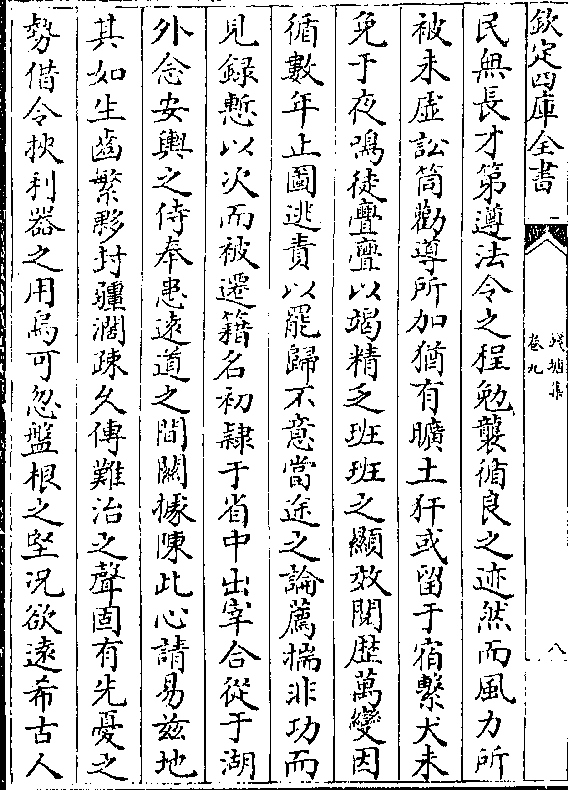 欽定四庫全書
錢塘集
卷九
八
民無長才第遵法令之程勉襲循良之迹然而風力所
被未虛訟筒勸導所加猶有曠土犴或留于宿繫犬未
免于夜鳴徒亹亹以竭精乏班班之顯效閱歴萬變因
循數年止圖逃責以罷歸不意當途之論薦揣非功而
見録慙以次而被遷籍名初隸于省中出宰合從于湖
外念安輿之侍奉患遠道之間關據陳此心請易兹地
其如生齒繁夥封疆濶疎久傳難治之聲固有先憂之
勢借令挾利器之用烏可忽盤根之堅況欲遠希古人